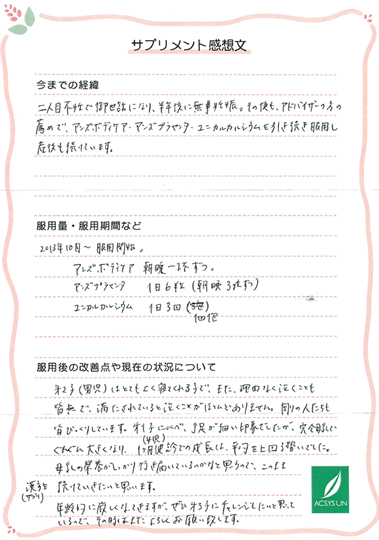 サプリメント感想文
今までの経緯
二人目不妊で御世話になり、半年後に無事妊娠。その後も、アドバイザーの方の
薦めで、アンズボディケア・アンズプラセンタ・ユニカルカルシウムを引き続き服用し
産後も続けています。
服用量・服用期間など
2013年10月〜 服用開始。
アンズボディケア 朝晩一包ずつ。
アンズプラセンタ 1日6粒(朝晩3粒ずつ)
ユニカルカルシウム 1日3回
服用後の改善点や現在の状況について
第2子(男児)はとてもよく寝てくれる子で、また、理由なく泣くことも
皆無で、満たされていると泣くことがほとんどありません。周りの人たちも
皆びっくりしています。第1子にくらべ、手足が細い印象でしたが、完全母乳で
ぐんぐん大きくなり、1ヶ月健診での成長は、平均を上回る勢いでした。
母乳の栄養がしっかり行き届いているのかなと思うので、このまま
続けていきたいと思います。
年齢的に厳しくなってきますが、ぜひ第3子にチャレンジしたいと思って
いるので、その時はまたよろしくお願い致します。
ACSYSLIN